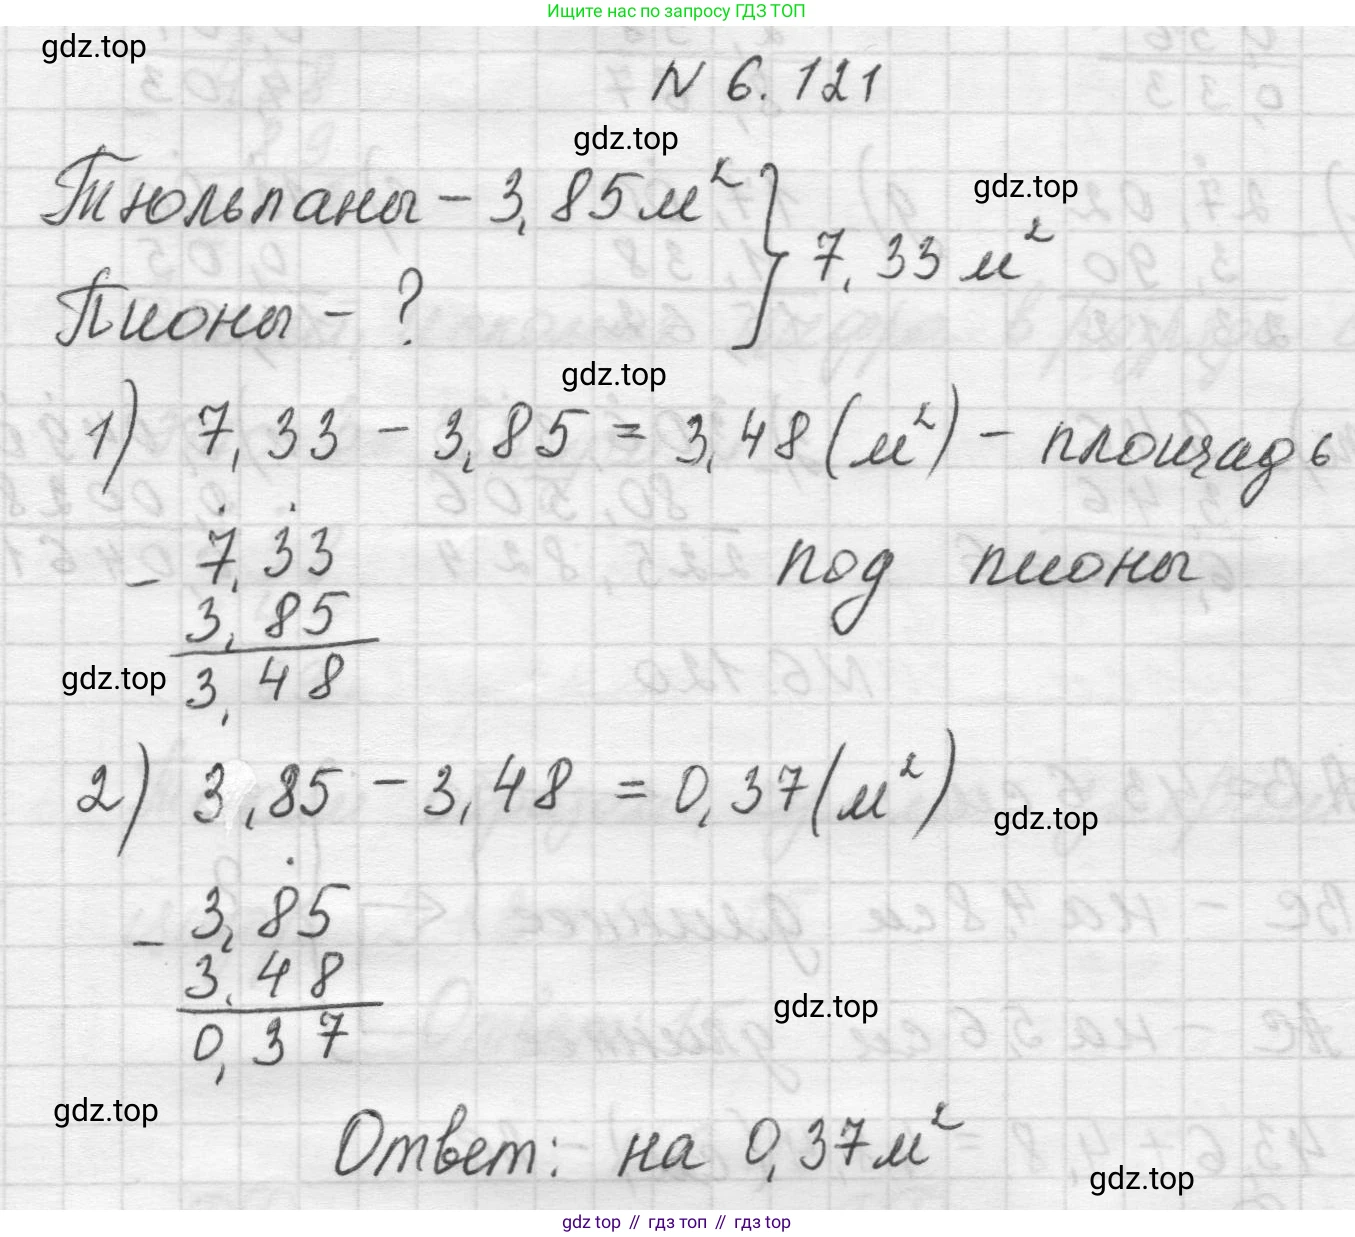 Ищите нас по запросу ГДЗ ТОП
gdz.top
N 6.121
gdz.top
Тюльпаны - 3,85 м²
gdz.top
} 7,33 м²
Пионы - ?
gdz.top
1) 7,33 - 3,85 = 3,48 (м²) - площадь
под пионы
- 7,33
3,85
gdz.top
3,48
2) 3,85 - 3,48 = 0,37 (м²)
gdz.top
- 3,85
3,48
gdz.top
0,37
gdz.top
Ответ: на 0,37 м²
gdz.top
gdz top // гдз топ // gdz top